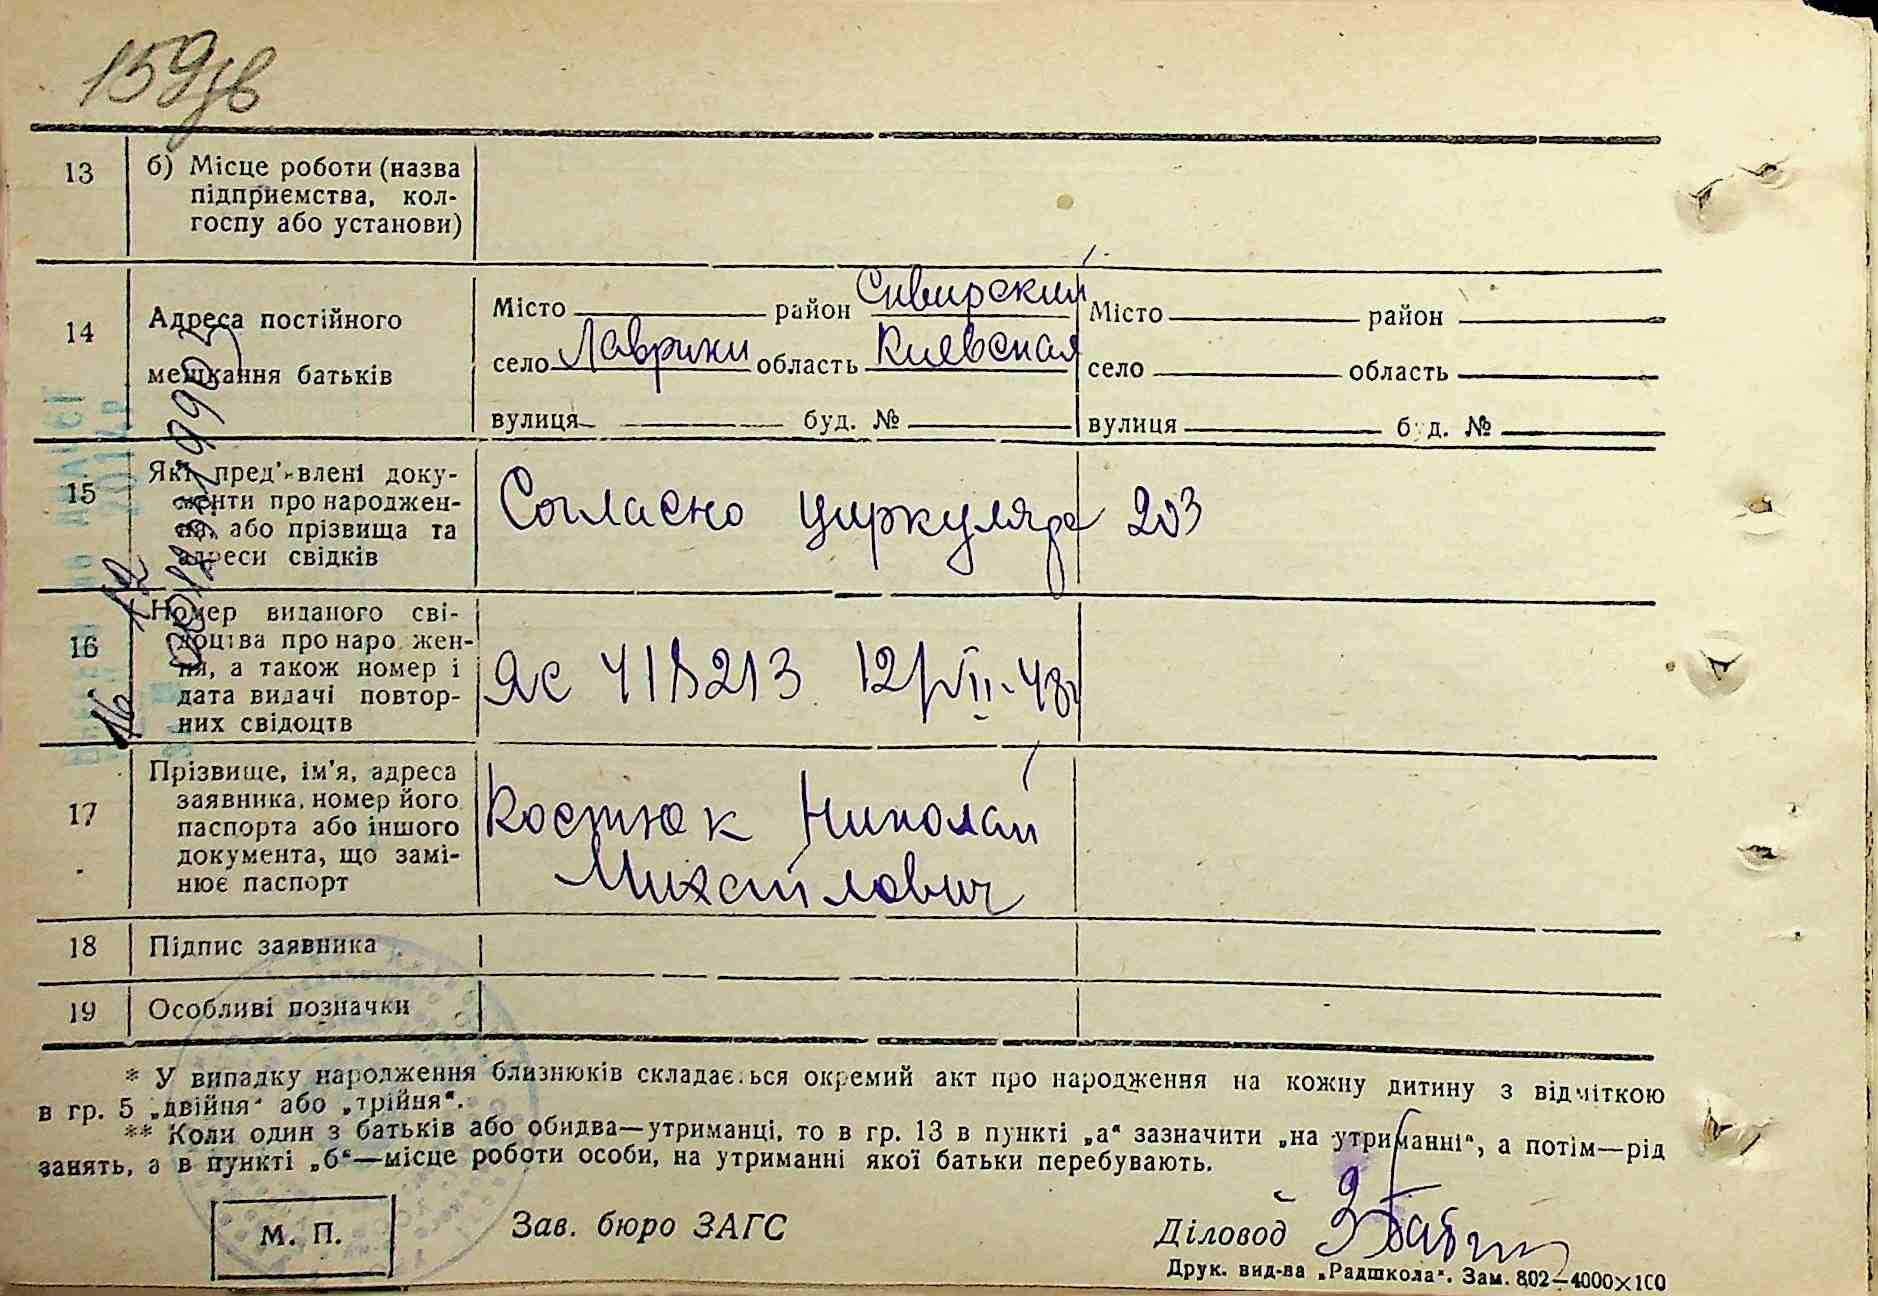 159зв
13 б) Місце роботи (назва
підприємства, кол-
госпу або установи)
14 Адреса постійного
мешкання батьків
Місто район Сквирский Місто район
село Лаврики область Киевская село область
вулиця буд. № вулиця буд. №
15 Які пред'явлені доку-
менти про народжен-
ня, або прізвища та
адреси свідків
Согласно циркуляра 203
16 Номер виданого сві-
доцтва про народжен-
ня, а також номер і
дата видачі повтор-
них свідоцтв
ЯС 418213 12/VII-48г
17 Прізвище, ім'я, адреса
заявника, номер його
паспорта або іншого
документа, що замі-
нює паспорт
Костюк Николай
Михайлович
18 Підпис заявника
19 Особливі позначки
* У випадку народження близнюків складається окремий акт про народження на кожну дитину з відміткою
в гр. 5 „двійня“ або „трійня“.
** Коли один з батьків або обидва—утриманці, то в гр. 13 в пункті „а“ зазначити „на утриманні“, а потім—рід
занять, а в пункті „б“—місце роботи особи, на утриманні якої батьки перебувають.
М. П.
Зав. бюро ЗАГС
Діловод
Друк. вид-ва „Радшкола“. Зам. 802—4000×100